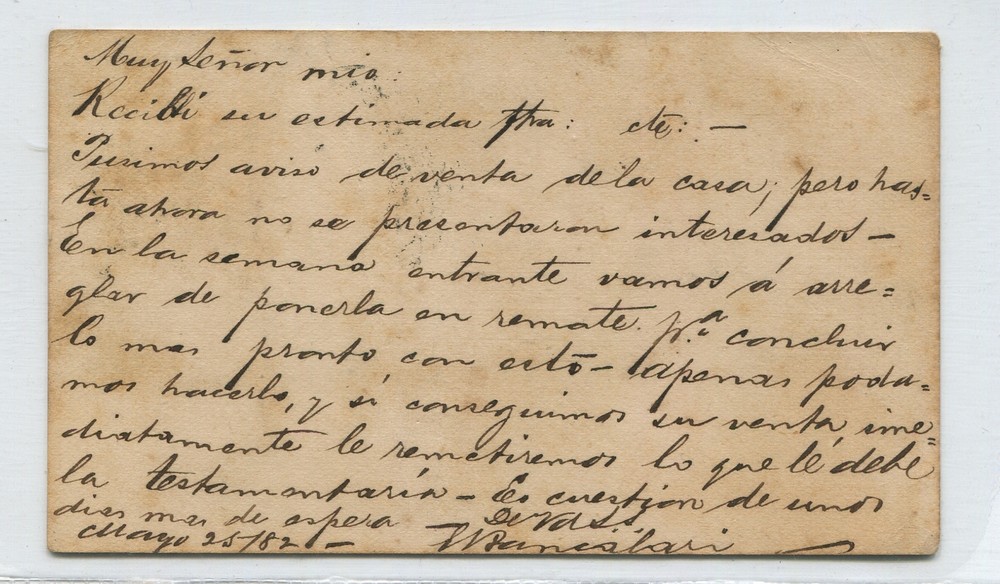 Muy Señor mio:
Recibi su estimada ftra: cte: —
Pusimos aviso de venta de la casa; pero has=
ta ahora no se presentaron interesados —
En la semana entrante vamos á arre=
glar de ponerla en remate. p.ª concluir
lo mas pronto con esto — apenas poda=
mos hacerlo, y si conseguimos su venta ime=
diatamente le remetiremos lo que lé debe
la testamentaría — Es cuestion de unos
dias mas de espera
De Vd S.S.
Mayo 25/82 —